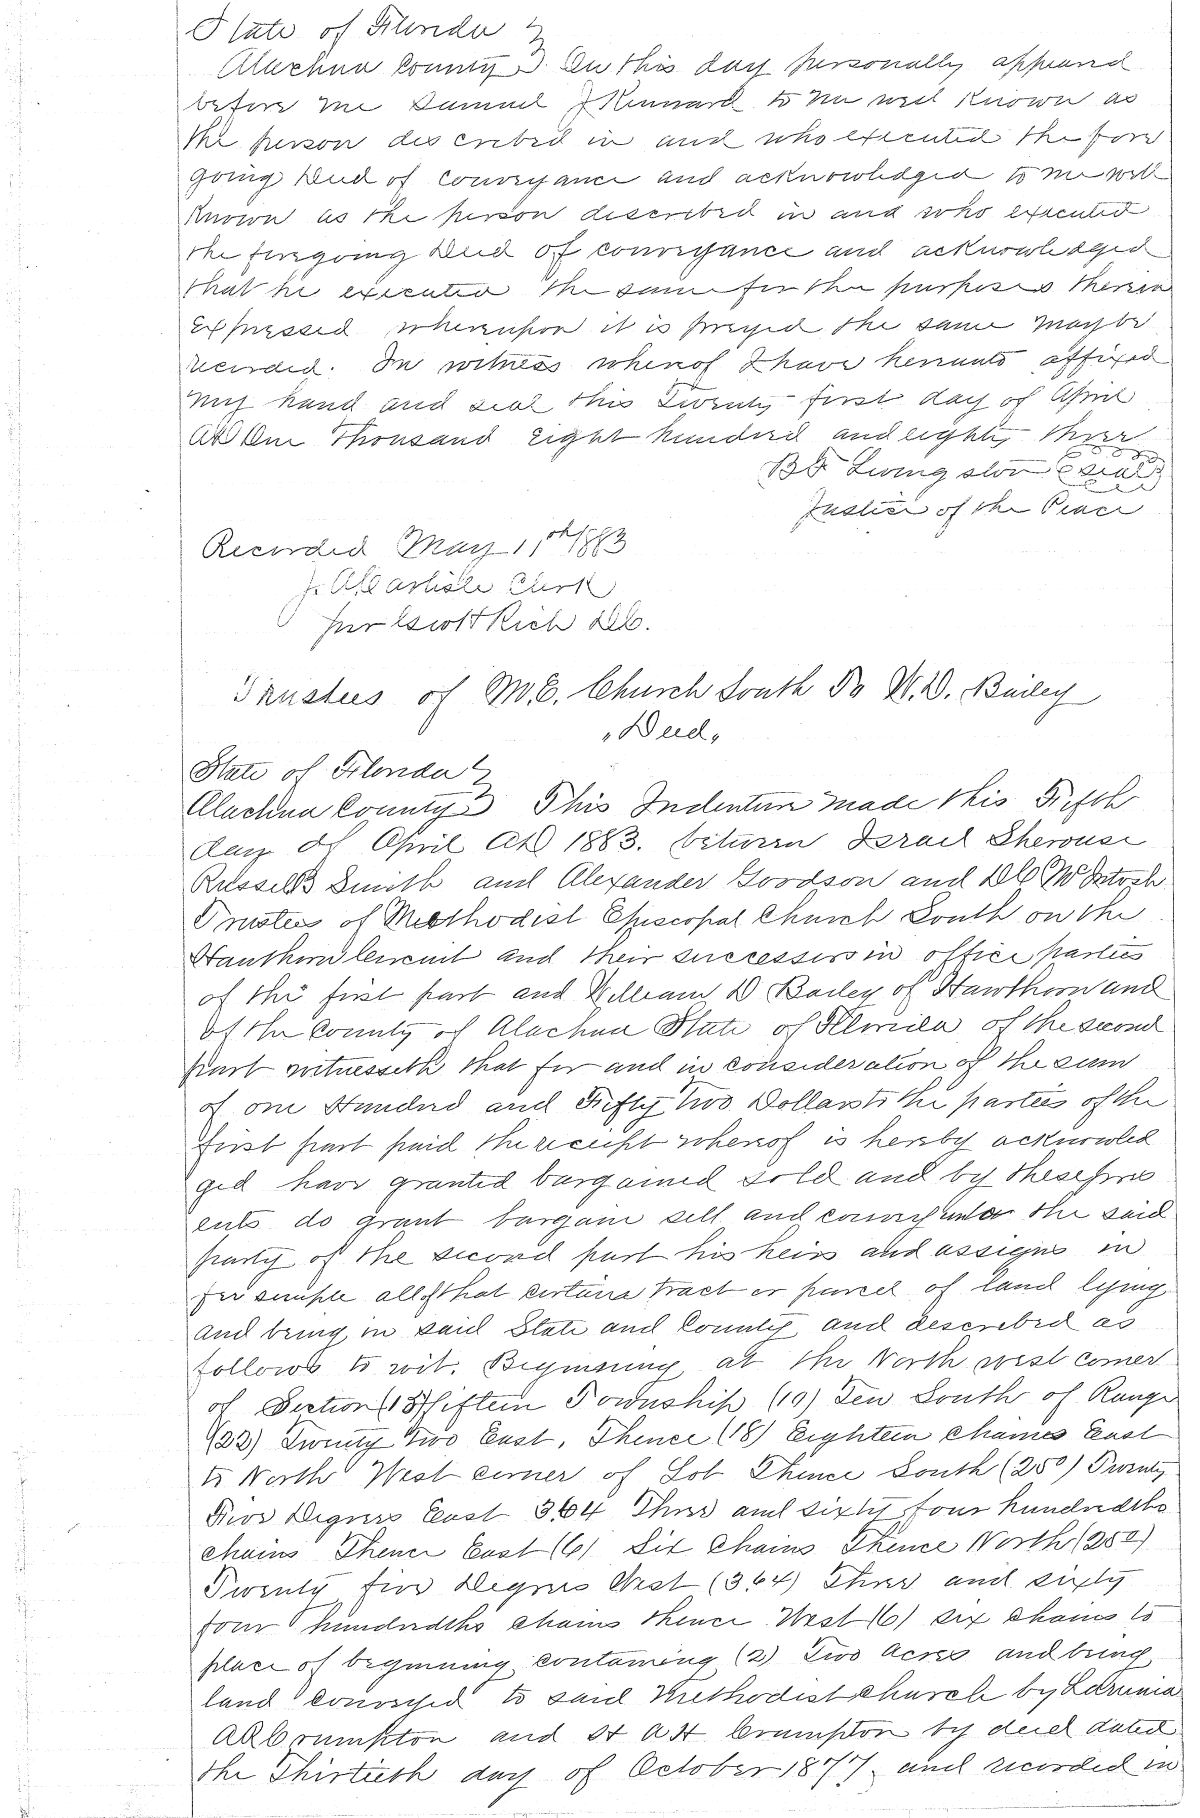 State of Florida }
Alachua County } On this day personally appeared
before me Samuel J Kennard to me well known as
the person described in and who executed the fore
going Deed of conveyance and acknowledged to me well
known as the person described in and who executed
the foregoing Deed of conveyance and acknowledged
that he executed the same for the purposes therein
Expressed whereupon it is prayed the same may be
recorded. In witness whereof I have hereunto affixed
my hand and seal this Twenty first day of April
AD One Thousand eight hundred and eighty three
B F Livingston (seal)
Justice of the Peace
Recorded May 11th 1883
J. A. Carlisle Clerk
pur Rich D.C.
Trustees of M.E. Church South To W.D. Bailey
"Deed"
State of Florida }
Alachua County } This Indenture made this Fifth
day of April AD 1883. between Israel Sherouse
Russell B Smith and Alexander Goodson and D C McIntosh
Trustees of Methodist Episcopal Church South on the
Hauthorn Circuit and their successors in office parties
of the first part and William D Bailey of Hawthorn and
of the County of Alachua State of Florida of the second
part witnesseth that for and in consideration of the sum
of one Hundred and Fifty Two Dollars to the parties of the
first part paid the receipt whereof is hereby acknowled
ged have granted bargained sold and by these pres
ents do grant bargain sell and convey unto the said
party of the second part his heirs and assigns in
fee simple all of that certain tract or parcel of land lying
and being in said State and County and described as
follows to wit. Beginning at the North west corner
of Section (15) fifteen Township (10) Ten South of Range
(22) Twenty Two East, Thence (18) Eighteen chains East
to North West corner of Lot Thence South (25°) Twenty
Five Degrees East 3.64 Three and sixty four hundredths
chains Thence East (6) Six Chains Thence North (25°)
Twenty five Degrees West (3.64) Three and sixty
four hundredths chains thence West (6) six chains to
place of beginning containing (2) Two Acres and being
land conveyed to said Methodist church by
Crumpton and A H Crumpton by deed dated
the Thirtieth day of October 1877, and recorded in